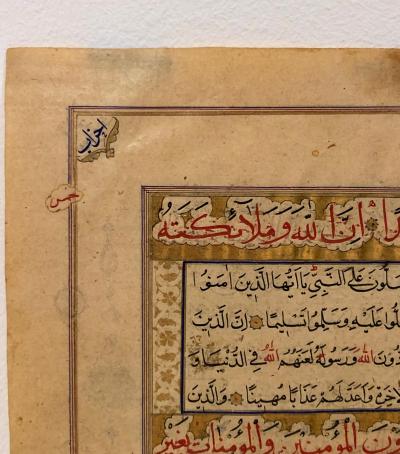 احزاب
خمس
رًا اِنَّ اللّٰهَ وَمَلَآئِكَتَهُ
لُّونَ عَلَى النَّبِيِّ يَا اَيُّهَا الَّذِينَ اٰمَنُوا
لُّوا عَلَيْهِ وَسَلِّمُوا تَسْلِيمًا اِنَّ الَّذِينَ
ذُونَ اللّٰهَ وَرَسُولَهُ لَعَنَهُمُ اللّٰهُ فِي الدُّنْيَا وَ
لْاٰخِرَةِ وَاَعَدَّ لَهُمْ عَذَابًا مُهِينًا وَالَّذِينَ
ونَ الْمُؤْمِنِينَ وَالْمُؤْمِنَاتِ بِغَيْرِ